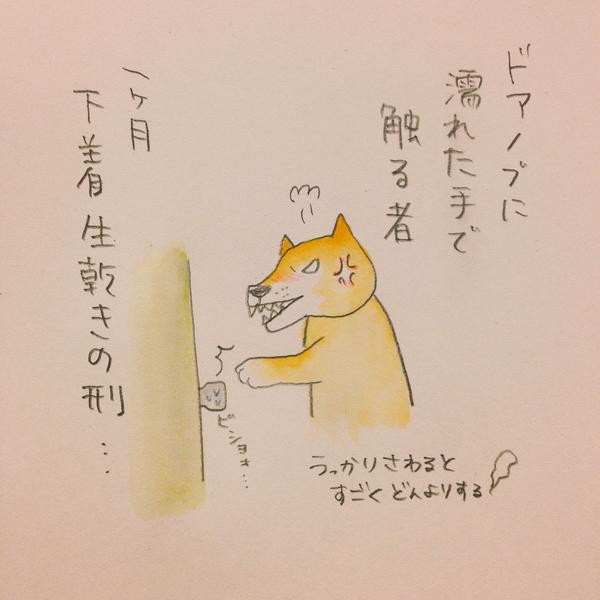 ドアノブに
濡れた手で
触る者
一ヶ月
下着生乾きの刑…
ビショォ…
うっかりさわると
すごくどんよりする